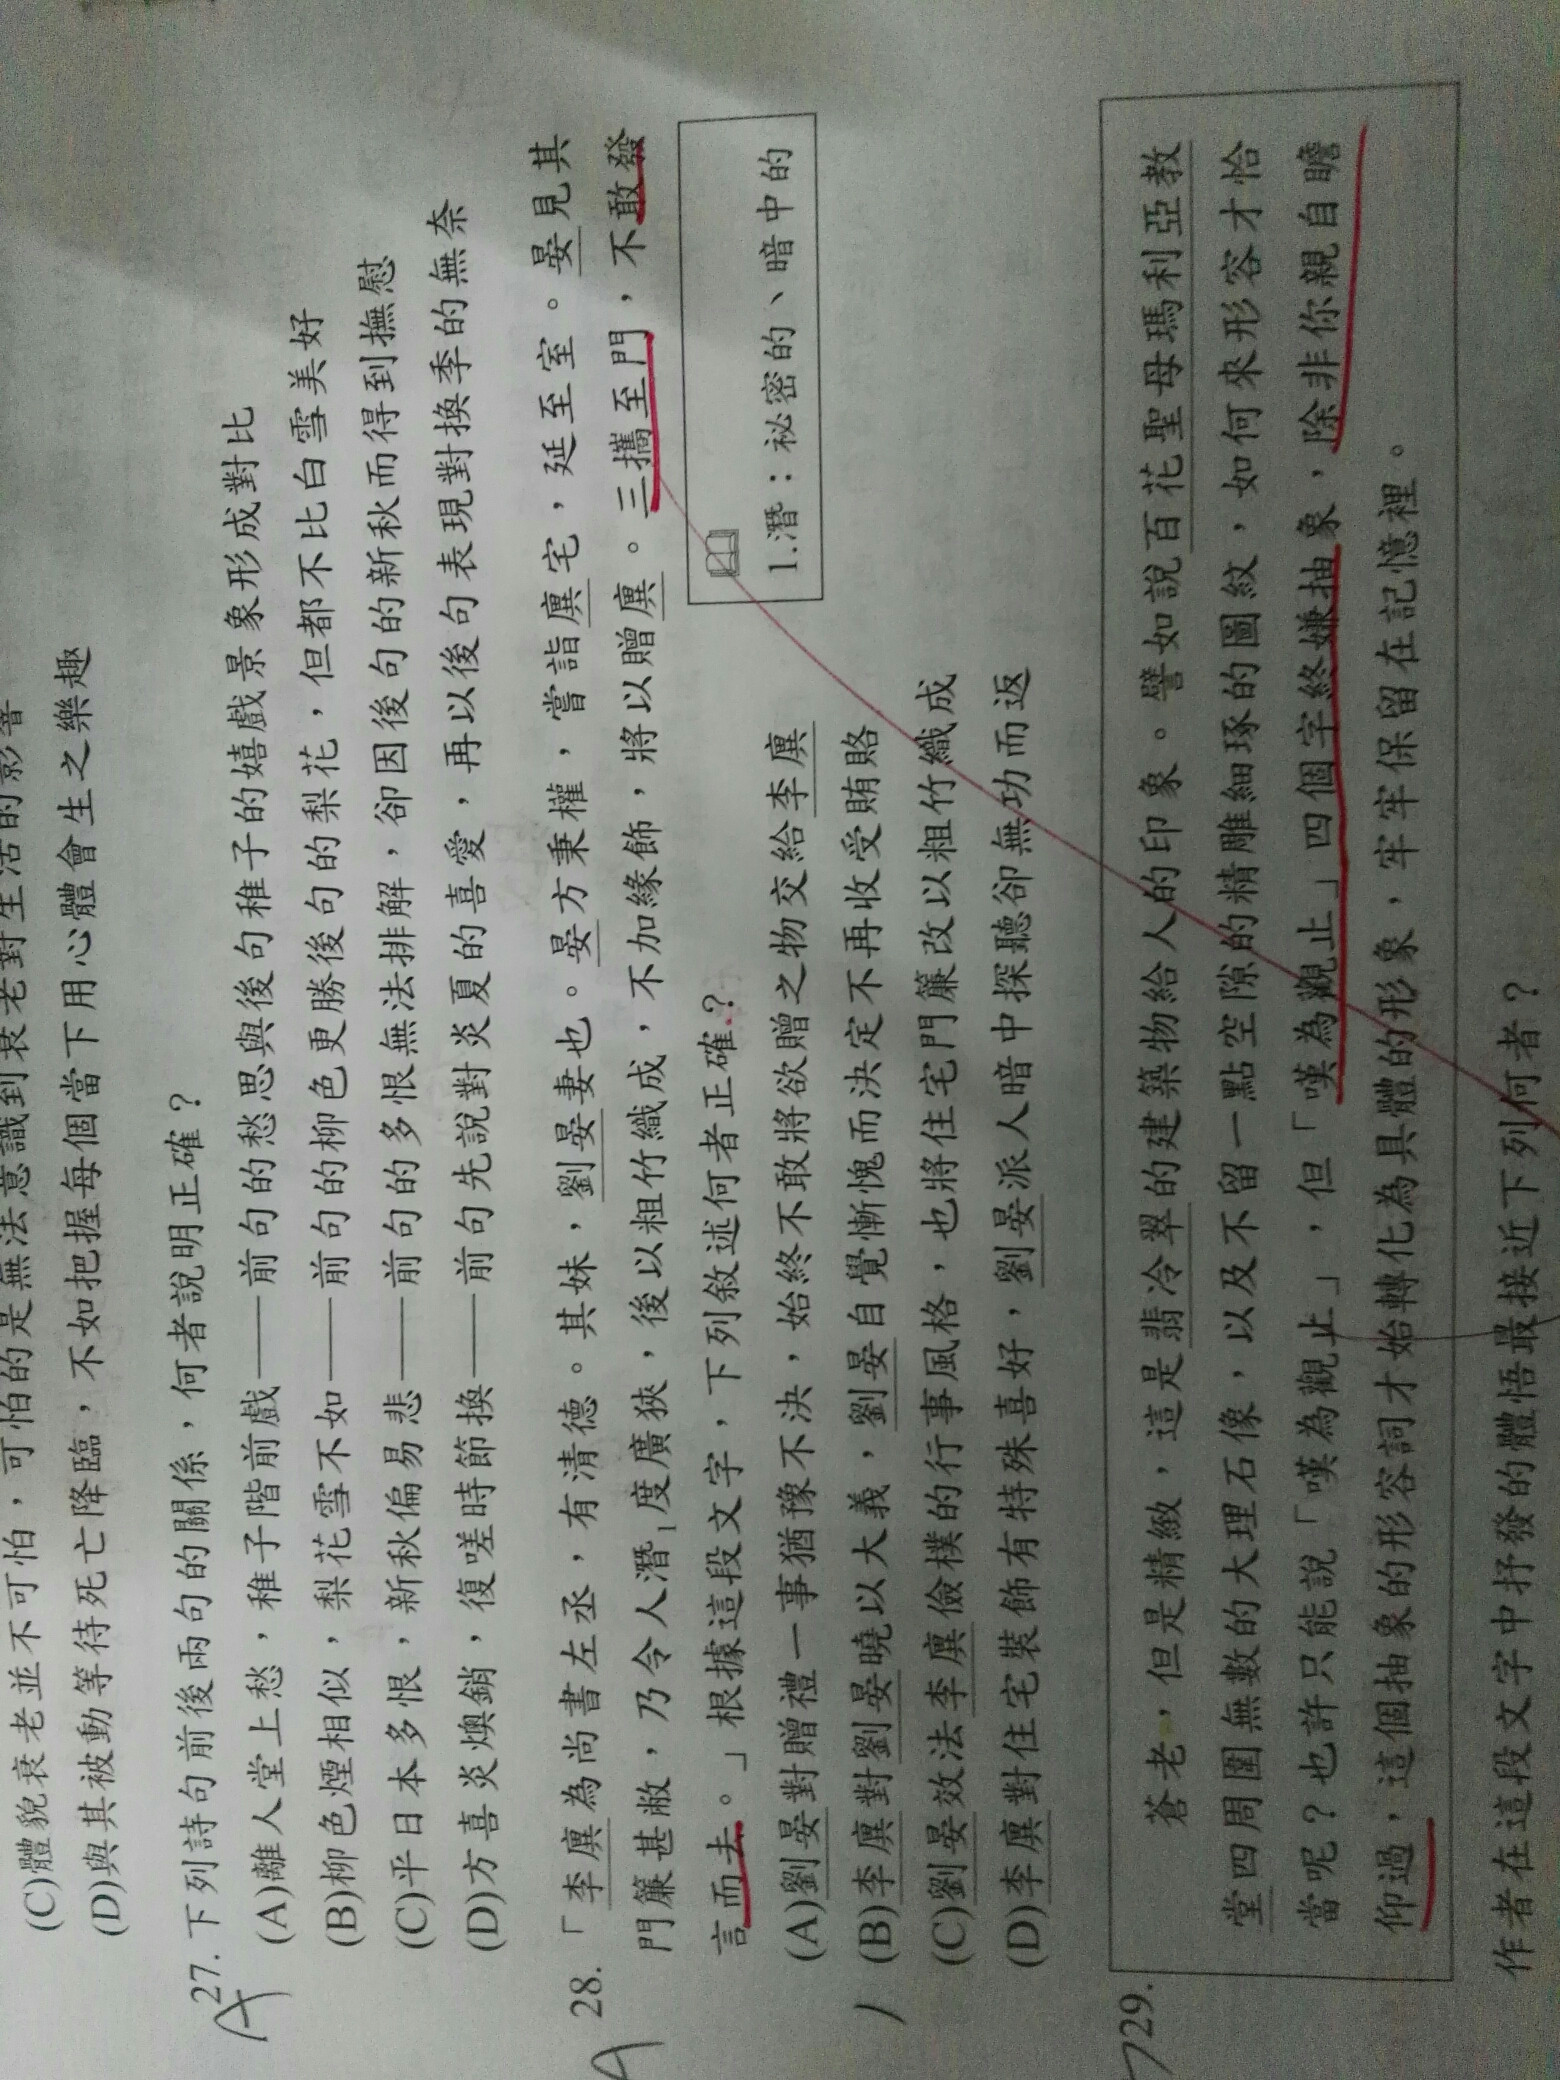 (C)體貌衰老並不可怕，可怕的是無法意識到衰老對生活的影響
(D)與其被動等待死亡降臨，不如把握每個當下用心體會生之樂趣
27.下列詩句前後兩句的關係，何者說明正確？
(A)離人堂上愁，稚子階前戲——前句的愁思與後句稚子的嬉戲景象形成對比
(B)柳色煙相似，梨花雪不如——前句的柳色更勝後句的梨花，但都不比白雪美好
(C)平日本多恨，新秋偏易悲——前句的多恨無法排解，卻因後句的新秋而得到撫慰
(D)方喜炎燠銷，復嗟時節換——前句先說對炎夏的喜愛，再以後句表現對換季的無奈
A
28.「李廙為尚書左丞，有清德。其妹，劉晏妻也。晏方秉權，嘗詣廙宅，延至室。晏見其
門簾甚敝，乃令人潛1度廣狹，後以粗竹織成，不加緣飾，將以贈廙。三攜至門，不敢發
言而去。」根據這段文字，下列敘述何者正確？
1.潛：祕密的、暗中的
(A)劉晏對贈禮一事猶豫不決，始終不敢將欲贈之物交給李廙
(B)李廙對劉晏曉以大義，劉晏自覺慚愧而決定不再收受賄賂
(C)劉晏效法李廙儉樸的行事風格，也將住宅門簾改以粗竹織成
(D)李廙對住宅裝飾有特殊喜好，劉晏派人暗中探聽卻無功而返
A
29.
蒼老，但是精緻，這是翡冷翠的建築物給人的印象。譬如說百花聖母瑪利亞教
堂四周圍無數的大理石像，以及不留一點空隙的精雕細琢的圖紋，如何來形容才恰
當呢？也許只能說「嘆為觀止」，但「嘆為觀止」四個字終嫌抽象，除非你親自瞻
仰過，這個抽象的形容詞才始轉化為具體的形象，牢牢保留在記憶裡。
作者在這段文字中抒發的體悟最接近下列何者？